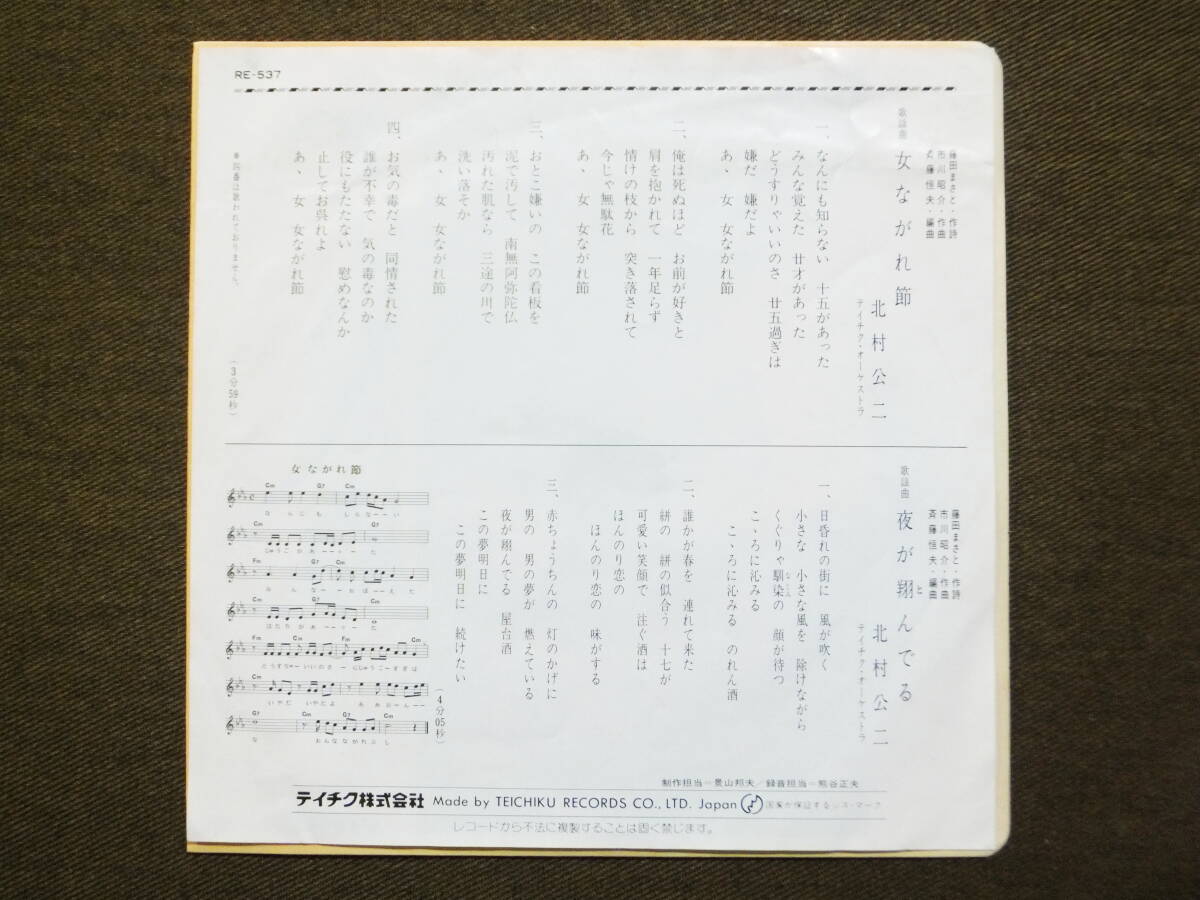 RE-537
歌謡曲
女ながれ節
藤田まさと・作詩
市川昭介・作曲
斉藤恒夫・編曲
北村公二
テイチク・オーケストラ
一、なんにも知らない 十五があった
みんな覚えた 廿才があった
どうすりゃいいのさ 廿五過ぎは
嫌だ 嫌だよ
あゝ 女 女ながれ節
二、俺は死ぬほど お前が好きと
肩を抱かれて 一年足らず
情けの枝から 突き落されて
今じゃ無駄花
あゝ 女 女ながれ節
三、おとこ嫌いの この看板を
泥で汚して 南無阿弥陀仏
汚れた肌なら 三途の川で
洗い落そか
あゝ 女 女ながれ節
四、お気の毒だと 同情された
誰が不幸で 気の毒なのか
役にもたたない 慰めなんか
止してお呉れよ
あゝ 女 女ながれ節
●四番は歌われておりません。
(3分59秒)
歌謡曲
夜が翔んでる
と
藤田まさと・作詩
市川昭介・作曲
斉藤恒夫・編曲
北村公二
テイチク・オーケストラ
一、日昏れの街に 風が吹く
小さな 小さな風を 除けながら
くぐりゃ馴染の 顔が待つ
なじみ
こゝろに沁みる
こゝろに沁みる のれん酒
二、誰かが春を 連れて来た
絣の 絣の似合う 十七が
可愛い笑顔で 注ぐ酒は
ほんのり恋の
ほんのり恋の 味がする
三、赤ちょうちんの 灯のかげに
男の 男の夢が 燃えている
夜が翔んでる 屋台酒
この夢明日に
この夢明日に 続けたい
(4分05秒)
女ながれ節
Cm G7 Cm
なんにも しらなーーい
Cm G7
じゅうごがあーーった
Fm Cm
みんなーおぼーーえた
G7 Cm
はたちがあーーった
Fm Cm Fm Cm
どうすりゃーいいのさー にじゅうごーすぎは
Cm G7 Cm
いやだ いやだよ あゝおんなーー
G7 Cm G7 Cm
な おんなながれぶし
制作担当＝景山邦夫／録音担当＝熊谷正夫
テイチク株式会社 Made by TEICHIKU RECORDS CO., LTD. Japan 国家が保証するJIS・マーク
レコードから不法に複製することは固く禁じます。